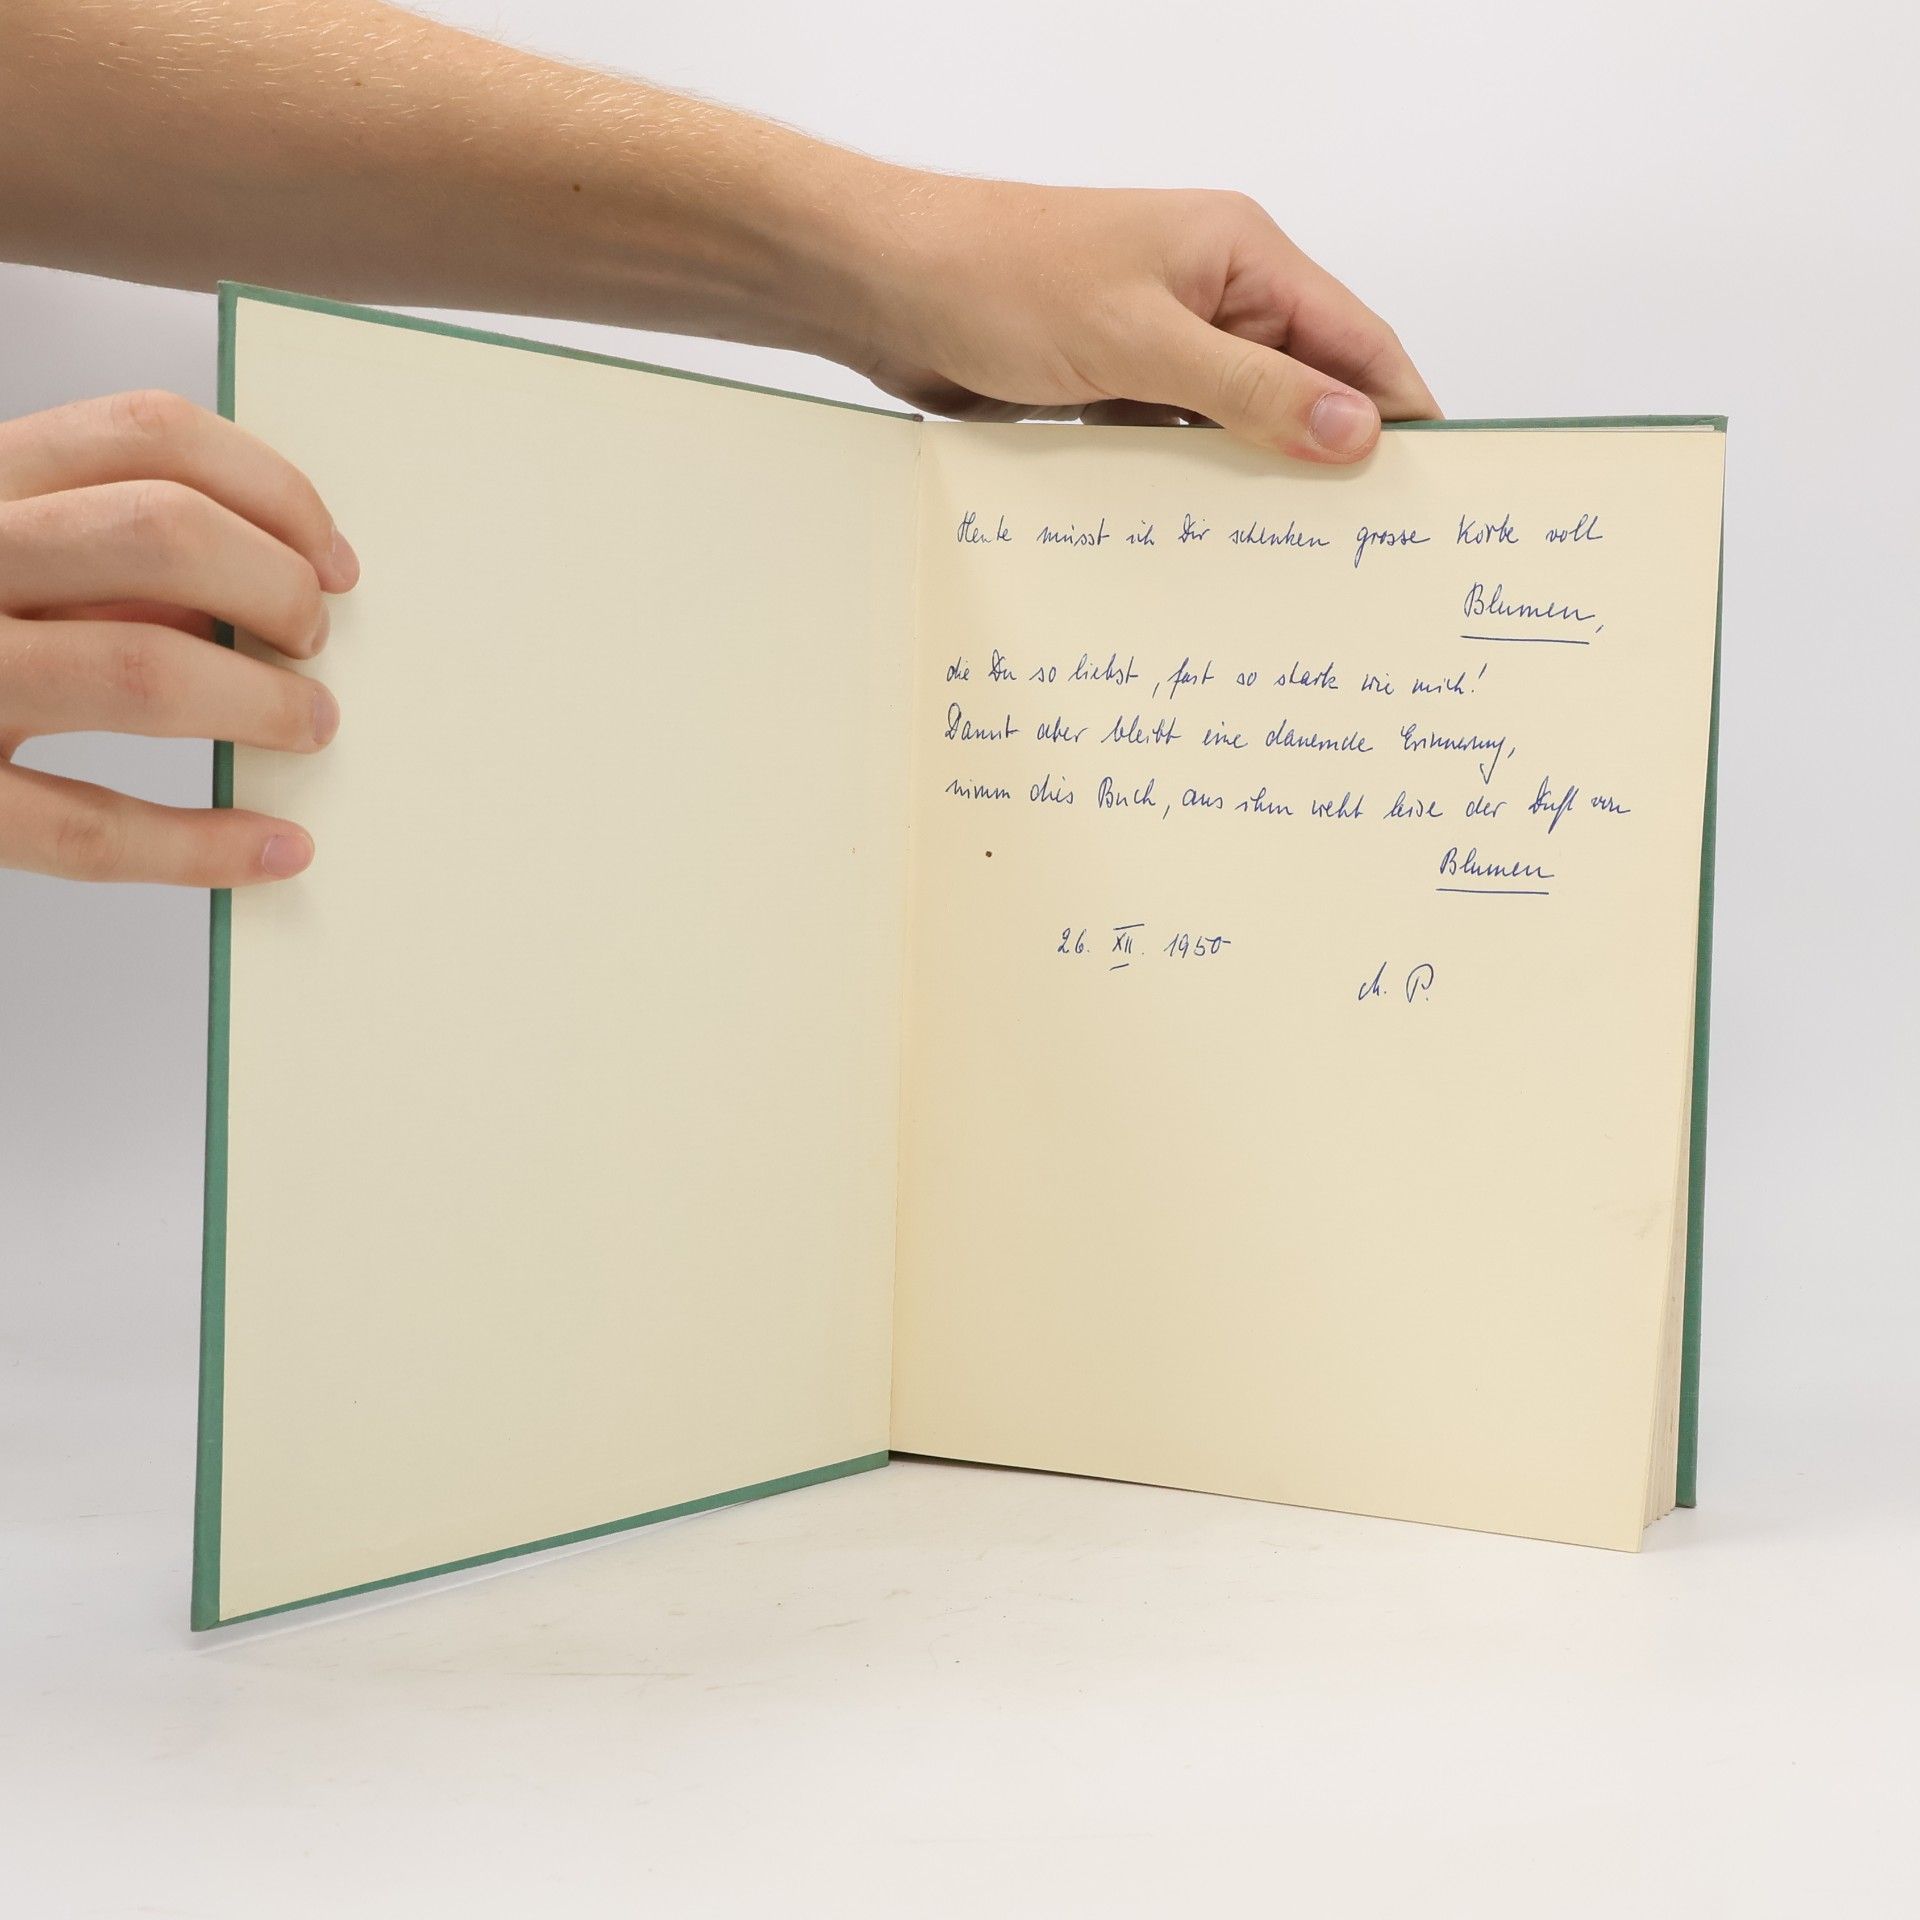 Heute müsst ich Dir schenken grosse Körbe voll
Blumen,
die Du so liebst, fast so stark wie mich!
Damit aber bleibt eine dauernde Erinnerung,
nimm dies Buch, aus ihm weht leise der Duft von
Blumen
26. XII. 1950
P.